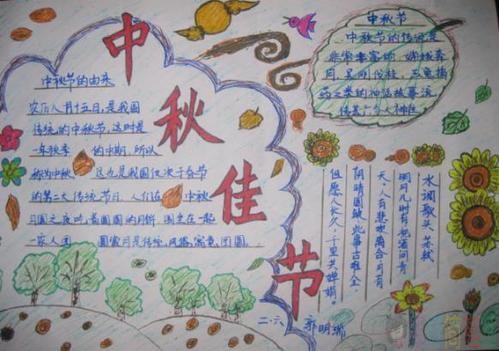 中秋佳节
中秋节的由来
农历八月十五日,是我国
传统的中秋节,这时是
一年秋季的中期,所以
称为中秋。这也是我国仅次于春节
的第二大传统节日。人们在中秋
一家人团圆
中秋节
中秋节的传说是
非常丰富的,嫦娥奔
月,吴刚伐桂,玉兔捣
药之类的神话故事流
传甚广
水调歌头 苏轼
明月几时有 把酒问青
天
人有悲欢离合 月有
阴晴圆缺 此事古难全,
但愿人长久,千里共婵娟。
二.六